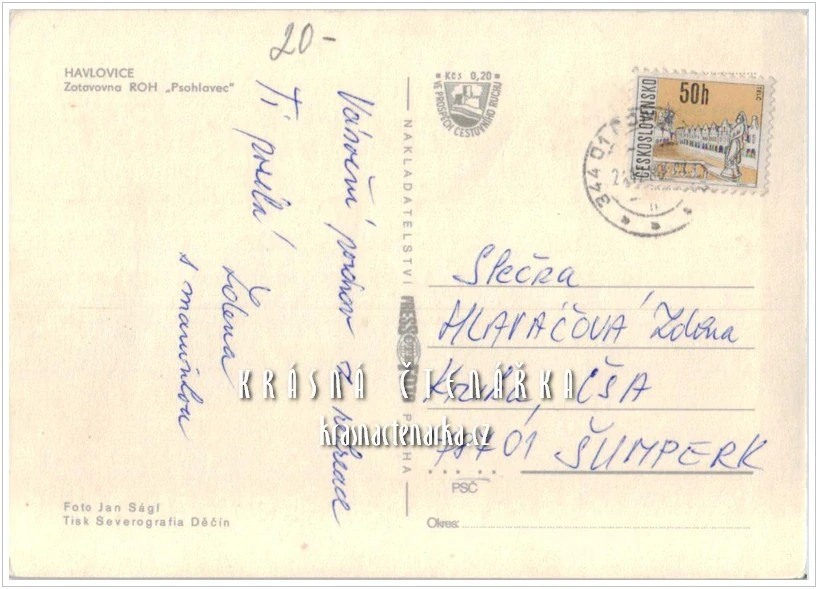 HAVLOVICE
Zotavovna ROH „Psohlavec"
20-
Vánoční pozdrav z rekreace
Ti posílá
Zdena
s maminkou
Kčs 0,20
VE PROSPĚCH CESTOVNÍHO RUCHU
ČESKOSLOVENSKO
50h
TELČ
344 01
NAKLADATELSTVÍ PRAHA
Slečna
HLAVÁČOVÁ Zdena
ČSA
787 01 ŠUMPERK
PSČ
Okres:
KRÁSNÁ ČTENÁŘKA
krasnactenarka.cz
Foto Jan Ságl
Tisk Severografia Děčín